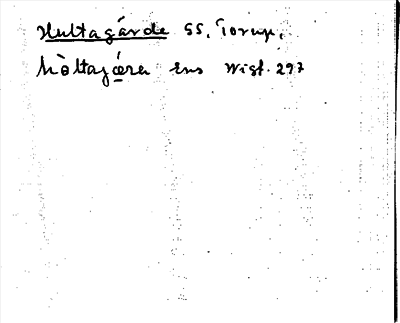 Hultagärde SS. Torup.
hòltagæra ens Wigf. 297